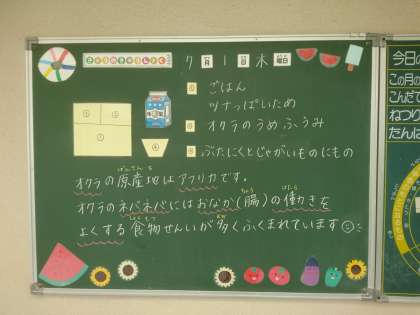 きょうのきゅうしょく 7月1日木曜日
① ごはん
ツナっぱいため
② オクラのうめふうみ
③ ぶたにくとじゃがいものにもの
① ②
③ ④
オクラの原産地はアフリカです。
オクラのネバネバにはおなか(腸)の働きを
よくする食物せんいが多くふくまれています
今日の
この月の
こんだて
ねつりょ
たんぱ